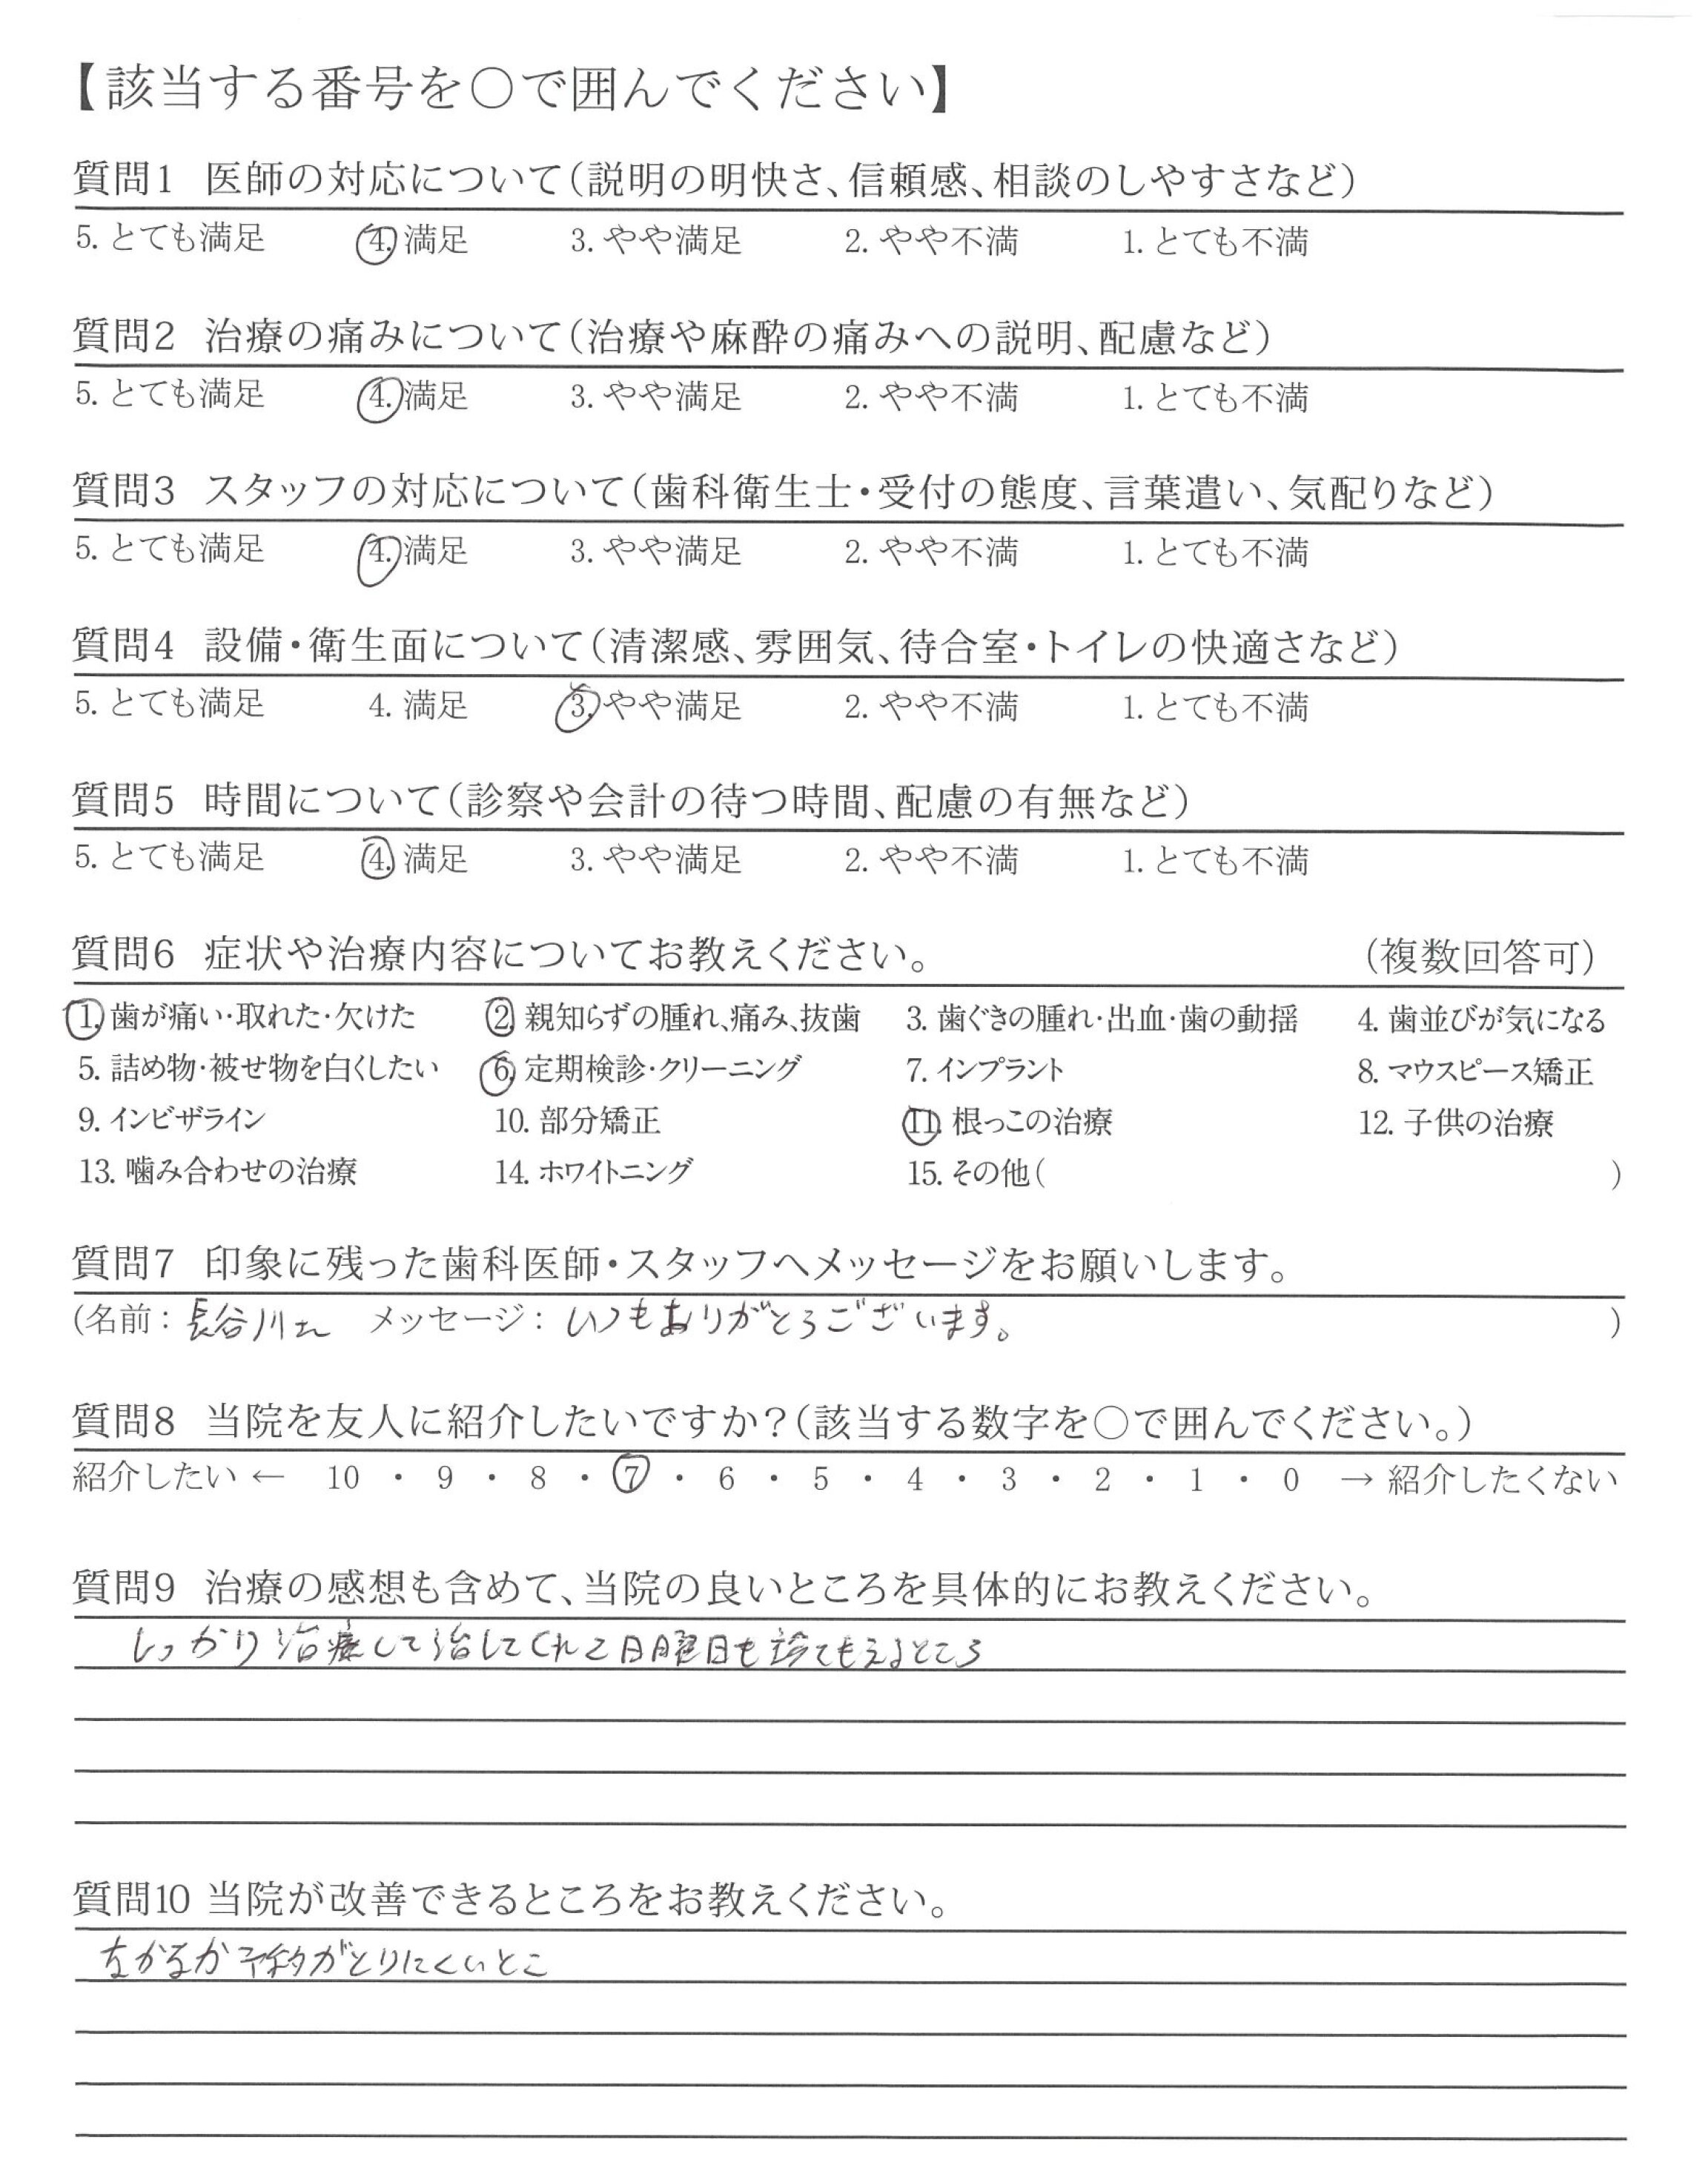 【該当する番号を○で囲んでください】
質問1 医師の対応について(説明の明快さ、信頼感、相談のしやすさなど)
5. とても満足 4. 満足 3. やや満足 2. やや不満 1. とても不満
質問2 治療の痛みについて(治療や麻酔の痛みへの説明、配慮など)
5. とても満足 4. 満足 3. やや満足 2. やや不満 1. とても不満
質問3 スタッフの対応について(歯科衛生士・受付の態度、言葉遣い、気配りなど)
5. とても満足 4. 満足 3. やや満足 2. やや不満 1. とても不満
質問4 設備・衛生面について(清潔感、雰囲気、待合室・トイレの快適さなど)
5. とても満足 4. 満足 3. やや満足 2. やや不満 1. とても不満
質問5 時間について(診察や会計の待つ時間、配慮の有無など)
5. とても満足 4. 満足 3. やや満足 2. やや不満 1. とても不満
質問6 症状や治療内容についてお教えください。 (複数回答可)
1. 歯が痛い・取れた・欠けた 2. 親知らずの腫れ、痛み、抜歯 3. 歯ぐきの腫れ・出血・歯の動揺 4. 歯並びが気になる
5. 詰め物・被せ物を白くしたい 6. 定期検診・クリーニング 7. インプラント 8. マウスピース矯正
9. インビザライン 10. 部分矯正 11. 根っこの治療 12. 子供の治療
13. 噛み合わせの治療 14. ホワイトニング 15. その他( )
質問7 印象に残った歯科医師・スタッフへメッセージをお願いします。
(名前: 長谷川 メッセージ: いつもありがとうございます。 )
質問8 当院を友人に紹介したいですか?(該当する数字を○で囲んでください。)
紹介したい ← 10 ・ 9 ・ 8 ・ 7 ・ 6 ・ 5 ・ 4 ・ 3 ・ 2 ・ 1 ・ 0 → 紹介したくない
質問9 治療の感想も含めて、当院の良いところを具体的にお教えください。
しっかり治療して治してくれて日曜日も診てもえるところ
質問10 当院が改善できるところをお教えください。
なかなか予約がとりにくいとこ